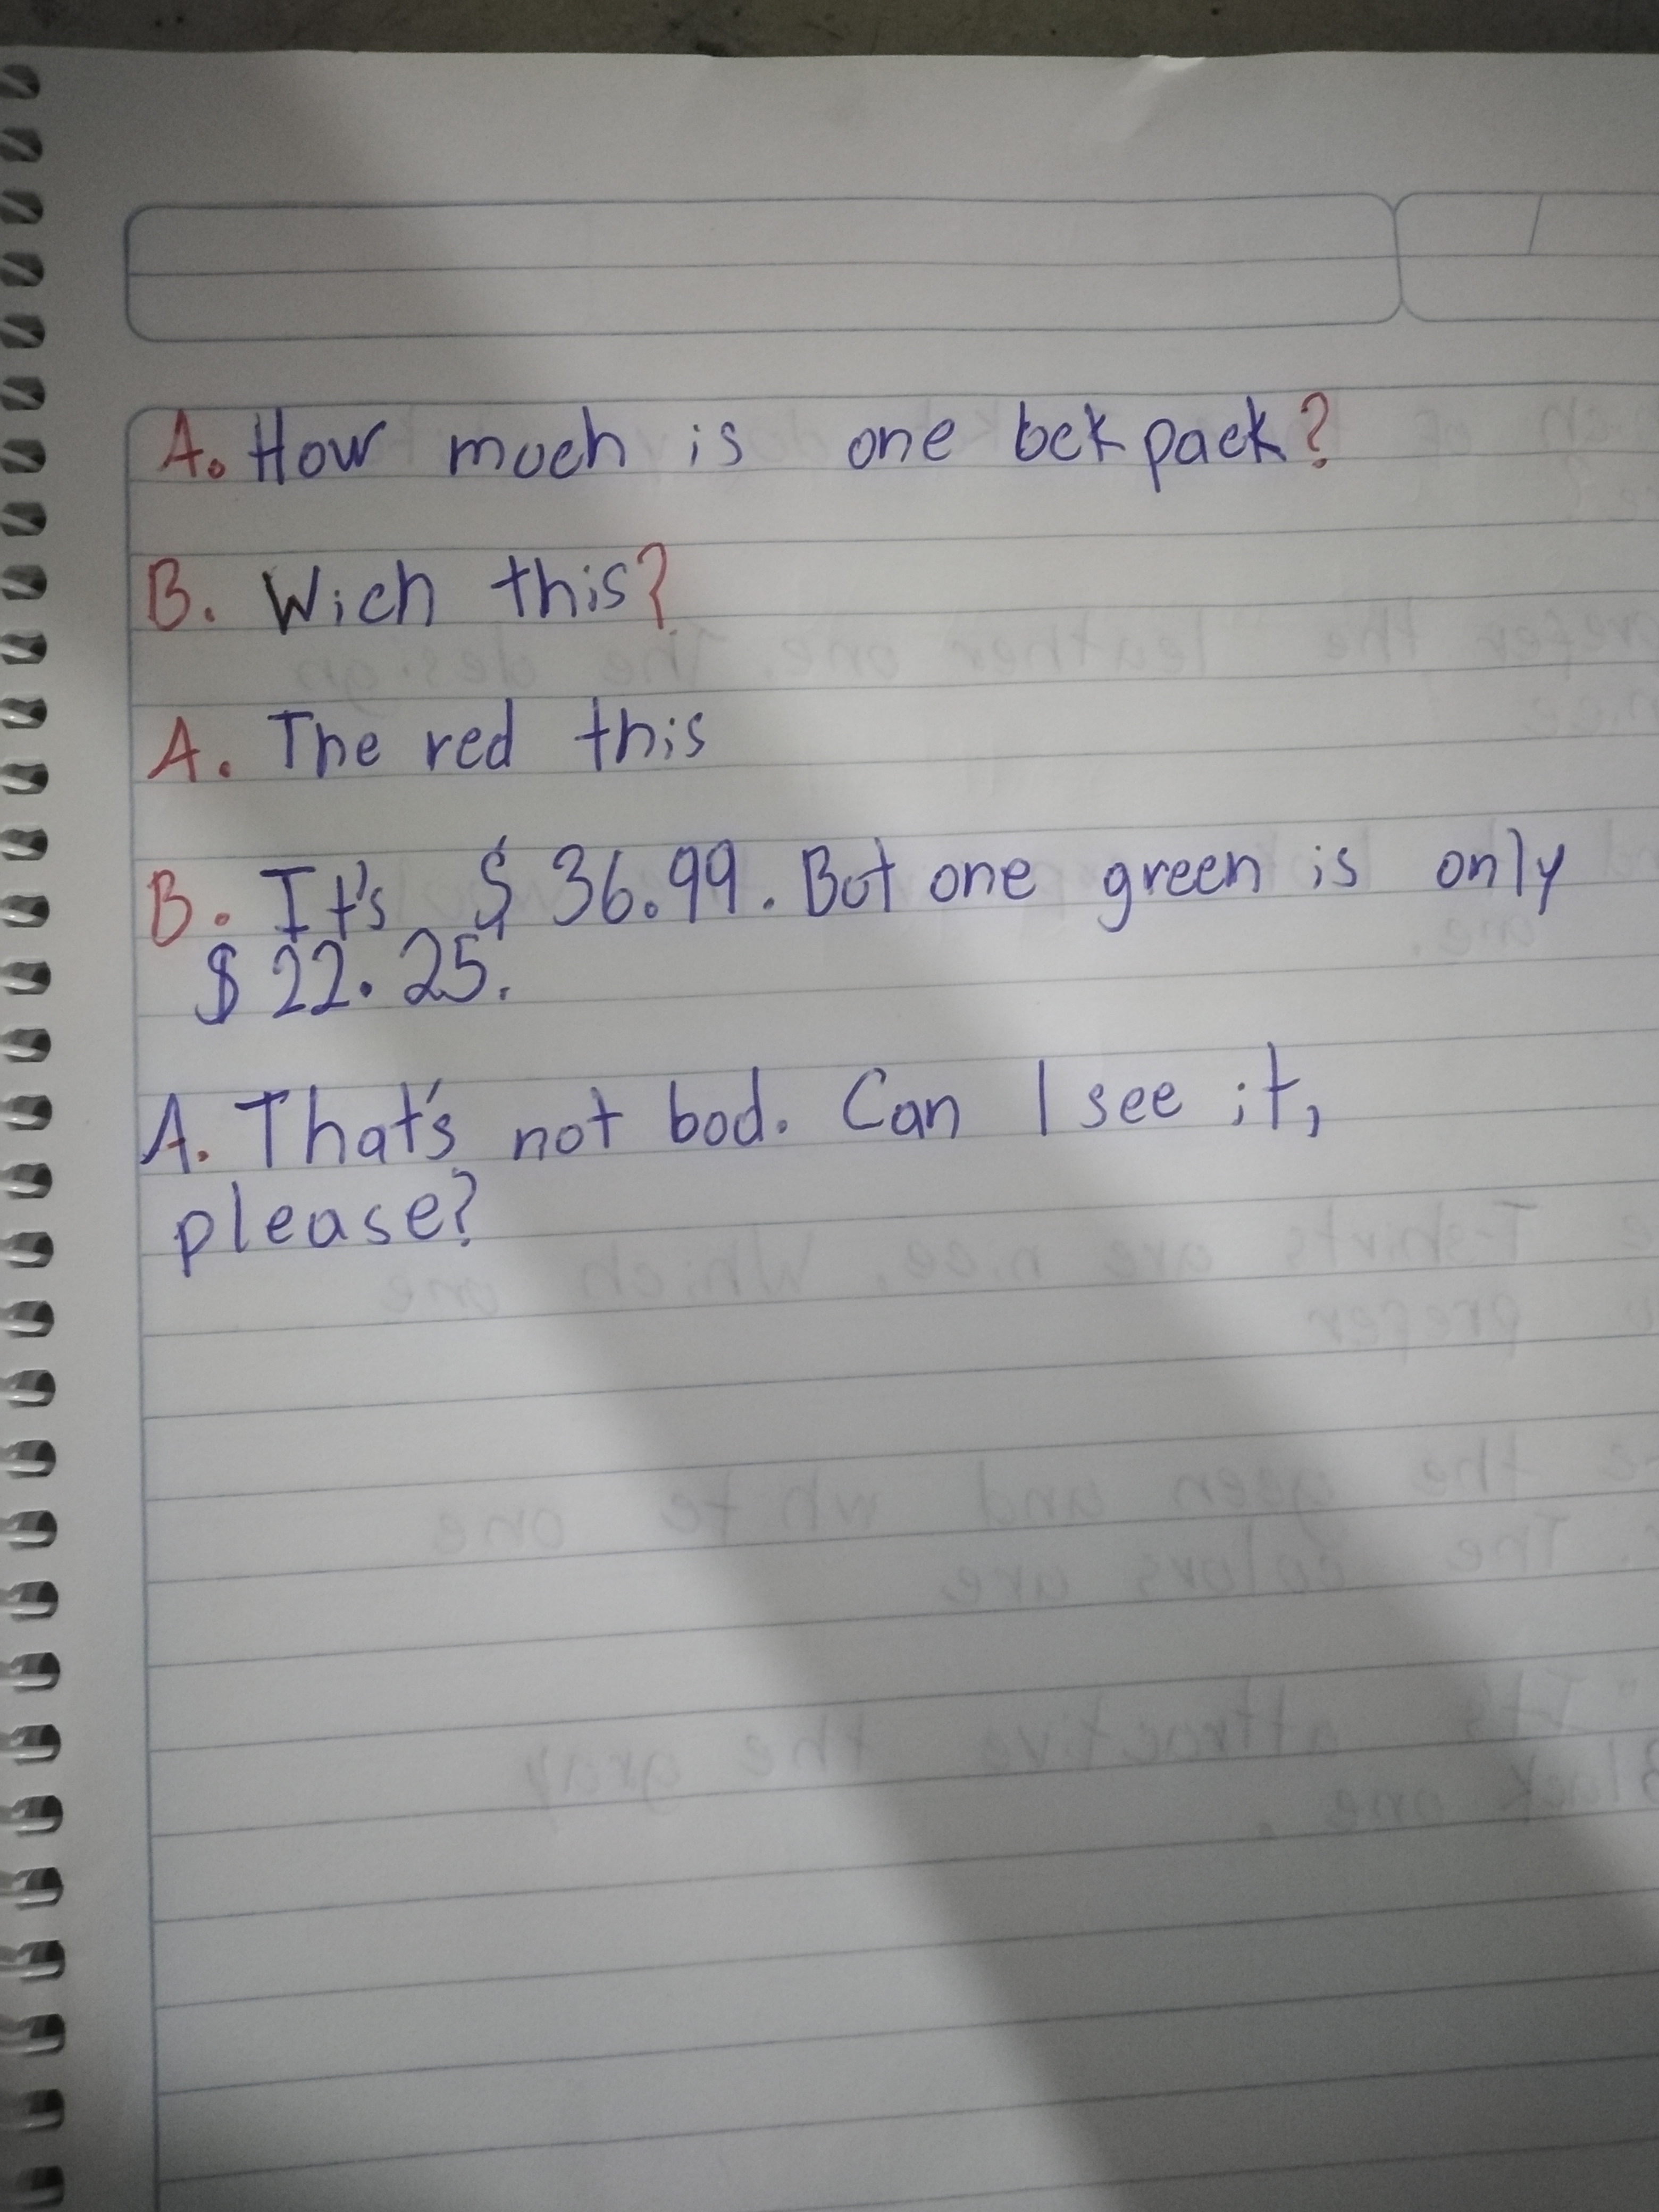 A. How much is one bckpack?
B. Wich this?
A. The red this
B. It's $ 36.99. But one green is only
$ 22.25.
A. That's not bad. Can I see it,
please?